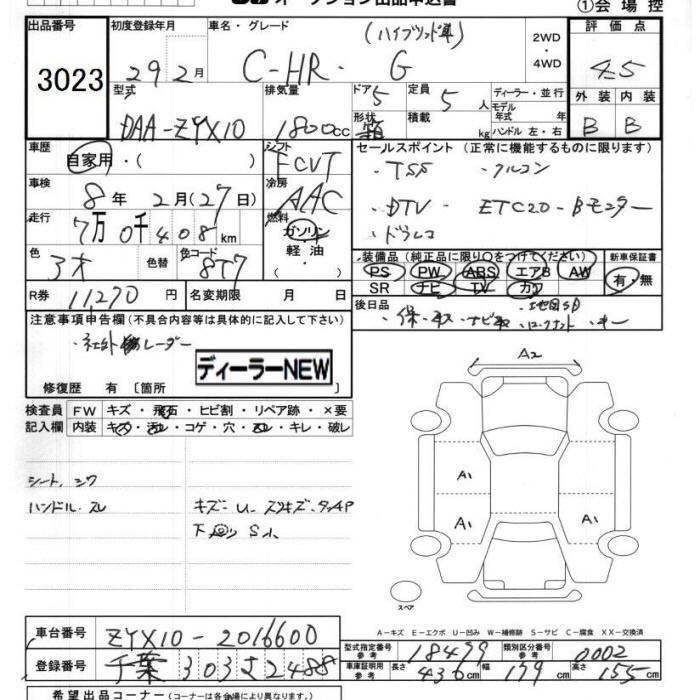 ①会場控
出品番号 初度登録年月 車名・グレード (ハイブリッド車) 2WD・4WD 評価点
3023 29 2月 C-HR・G 4.5
型式 排気量 ドア 5 定員 5人 ディーラー・並行 外装 内装
DAA-ZYX10 1800cc 形状 箱 積載 kg モデル年式 年式 ハンドル 左・右 B B
車歴 シフト セールスポイント (正常に機能するものに限ります)
自家用・( ) FCVT ・TSS ・クルコン
車検 冷房 AAC
8年 2月(27日) ・DTV・ETC2.0・Bモニター
走行 燃料 ・ドラレコ
7万0千408km ガソリン 軽油
色 色替 色コード 8T7 装備品 (純正品に限り○をつけてください) 新車保証書
PS PW ABS エアB AW 有・無
SR ナビ TV カワ
R券 11,270円 名変期限 月 日 後日品
注意事項申告欄(不具合内容等は具体的に記入して下さい)
レーダー
ディーラーNEW
修復歴 有 〔箇所
A2
検査員 FW キズ・飛石・ヒビ割・リペア跡・×要
記入欄 内装 キズ・汚レ・コゲ・穴・スレ・キレ・破レ
シート、シワ
ハンドル、スレ
A1
A1 A1
スペア
A-キズ E-エクボ U-凹み W-補修跡 S-サビ C-腐食 XX-交換済
車台番号 ZYX10-2016600 型式指定番号 参考 18499 類別区分番号 参考 0002
登録番号 千葉 303 さ 2488 車庫証明用 参考 長さ 436cm 幅 179cm 高さ 155cm
希望出品コーナー(コーナーは各会場により異なります。)